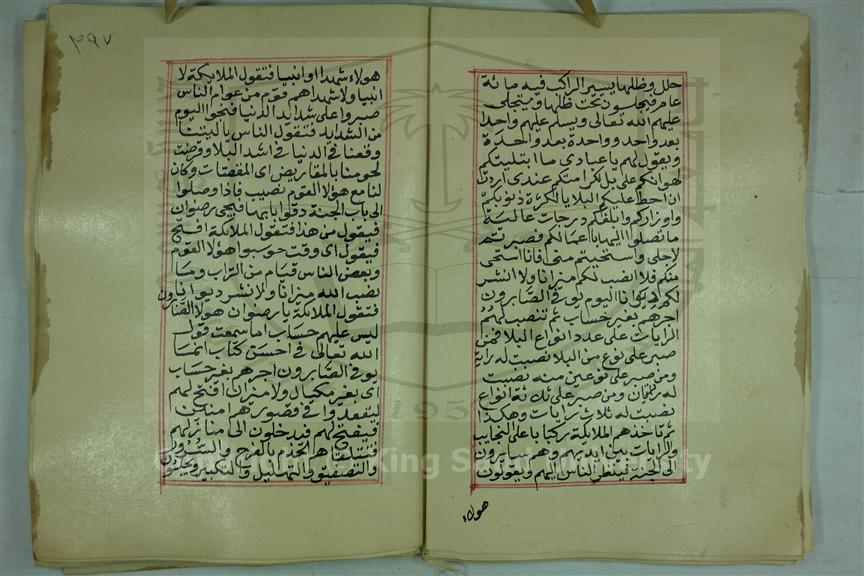 حلل وظلها يسير الراكب فيه مائة
عام فيجلسون تحت ظلها ويتجلى
عليهم الله تعالى ويسلم عليهم واحدا
بعد واحد وواحدة بعد واحدة
ويقول لهم يا عبادي ما ابتليتكم
لهوانكم على بل لكرامتكم عندي اردت
ان احط عليكم البلايا لكثرة ذنوبكم
واوزاركم وابلغكم درجات عالية
ما تصلوا اليها باعمالكم فصبرتم
لاجلى واستحيتم منى فانا استحى
منكم فلا انصب لكم ميزانا ولا انشر
لكم ديوانا اليوم نوفى الصابرون
اجرهم بغير حساب ثم تنصب لهم
الرايات على عدد انواع البلا فمن
صبر على نوع من البلا نصبت له راية
ومن صبر على نوعين منه نصبت
له رايتان ومن صبر على ثلاثة انواع
نصبت له ثلاث رايات وهكذا
ثم تاخذهم الملايكة ركبانا على النجايب
والرايات بين ايديهم وهم سايرون
الى الجنة ينظر الناس اليهم ويقولون
هولاء
٣٩٧
هولاء شهدا او انبيا فتقول الملايكة لا
انبيا ولا شهدا هم قوم من عوام الناس
صبروا على شدايد الدنيا فنجوا اليوم
من الشدايد فتقول الناس ياليتنا
وقعنا في الدنيا في اشد البلا وقرضت
لحومنا بالمقاريض اى المقصات وكان
لنا مع هولا القوم نصيب فاذا وصلوا
الى باب الجنة دقوا بابها فيجى رضوان
فيقول من هذا فتقول الملايكة افتح
فيقول اى وقت حوسبوا هولا القوم
وبعض الناس قيام من التراب وما
نصب الله ميزانا ولا نشر ديوانا
فتقول الملايكة يا رضوان هولا الصابرون
ليس عليهم حساب اما سمعت قول
الله تعالى في احسن كتاب انما
يوفى الصابرون اجرهم بغير حساب
اى بغير مكيال ولا ميزان افتح لهم
ليقعدوا في قصورهم امنين
فيفتح لهم فيدخلون الى منازلهم
فتتلقاهم الخدم بالفرح والسرور
والتصفيق والتهليل والتكبير